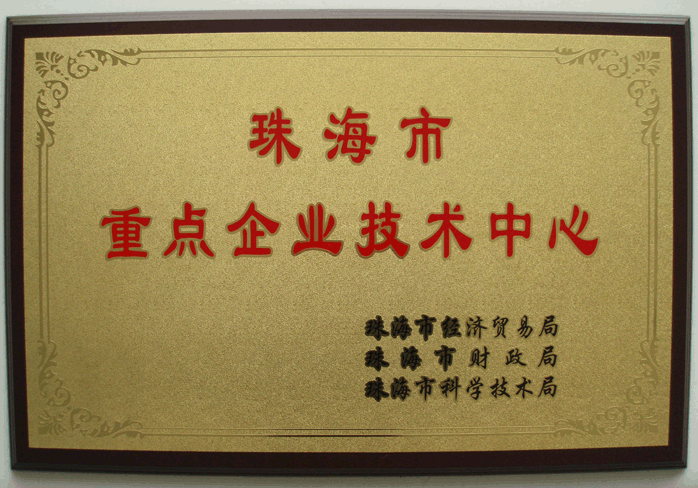 珠海市
重点企业技术中心
珠海市经济贸易局
珠海市财政局
珠海市科学技术局